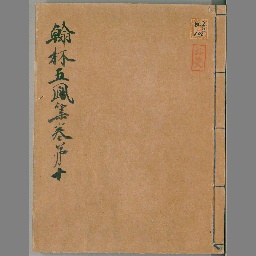 翰林五鳳集卷第十